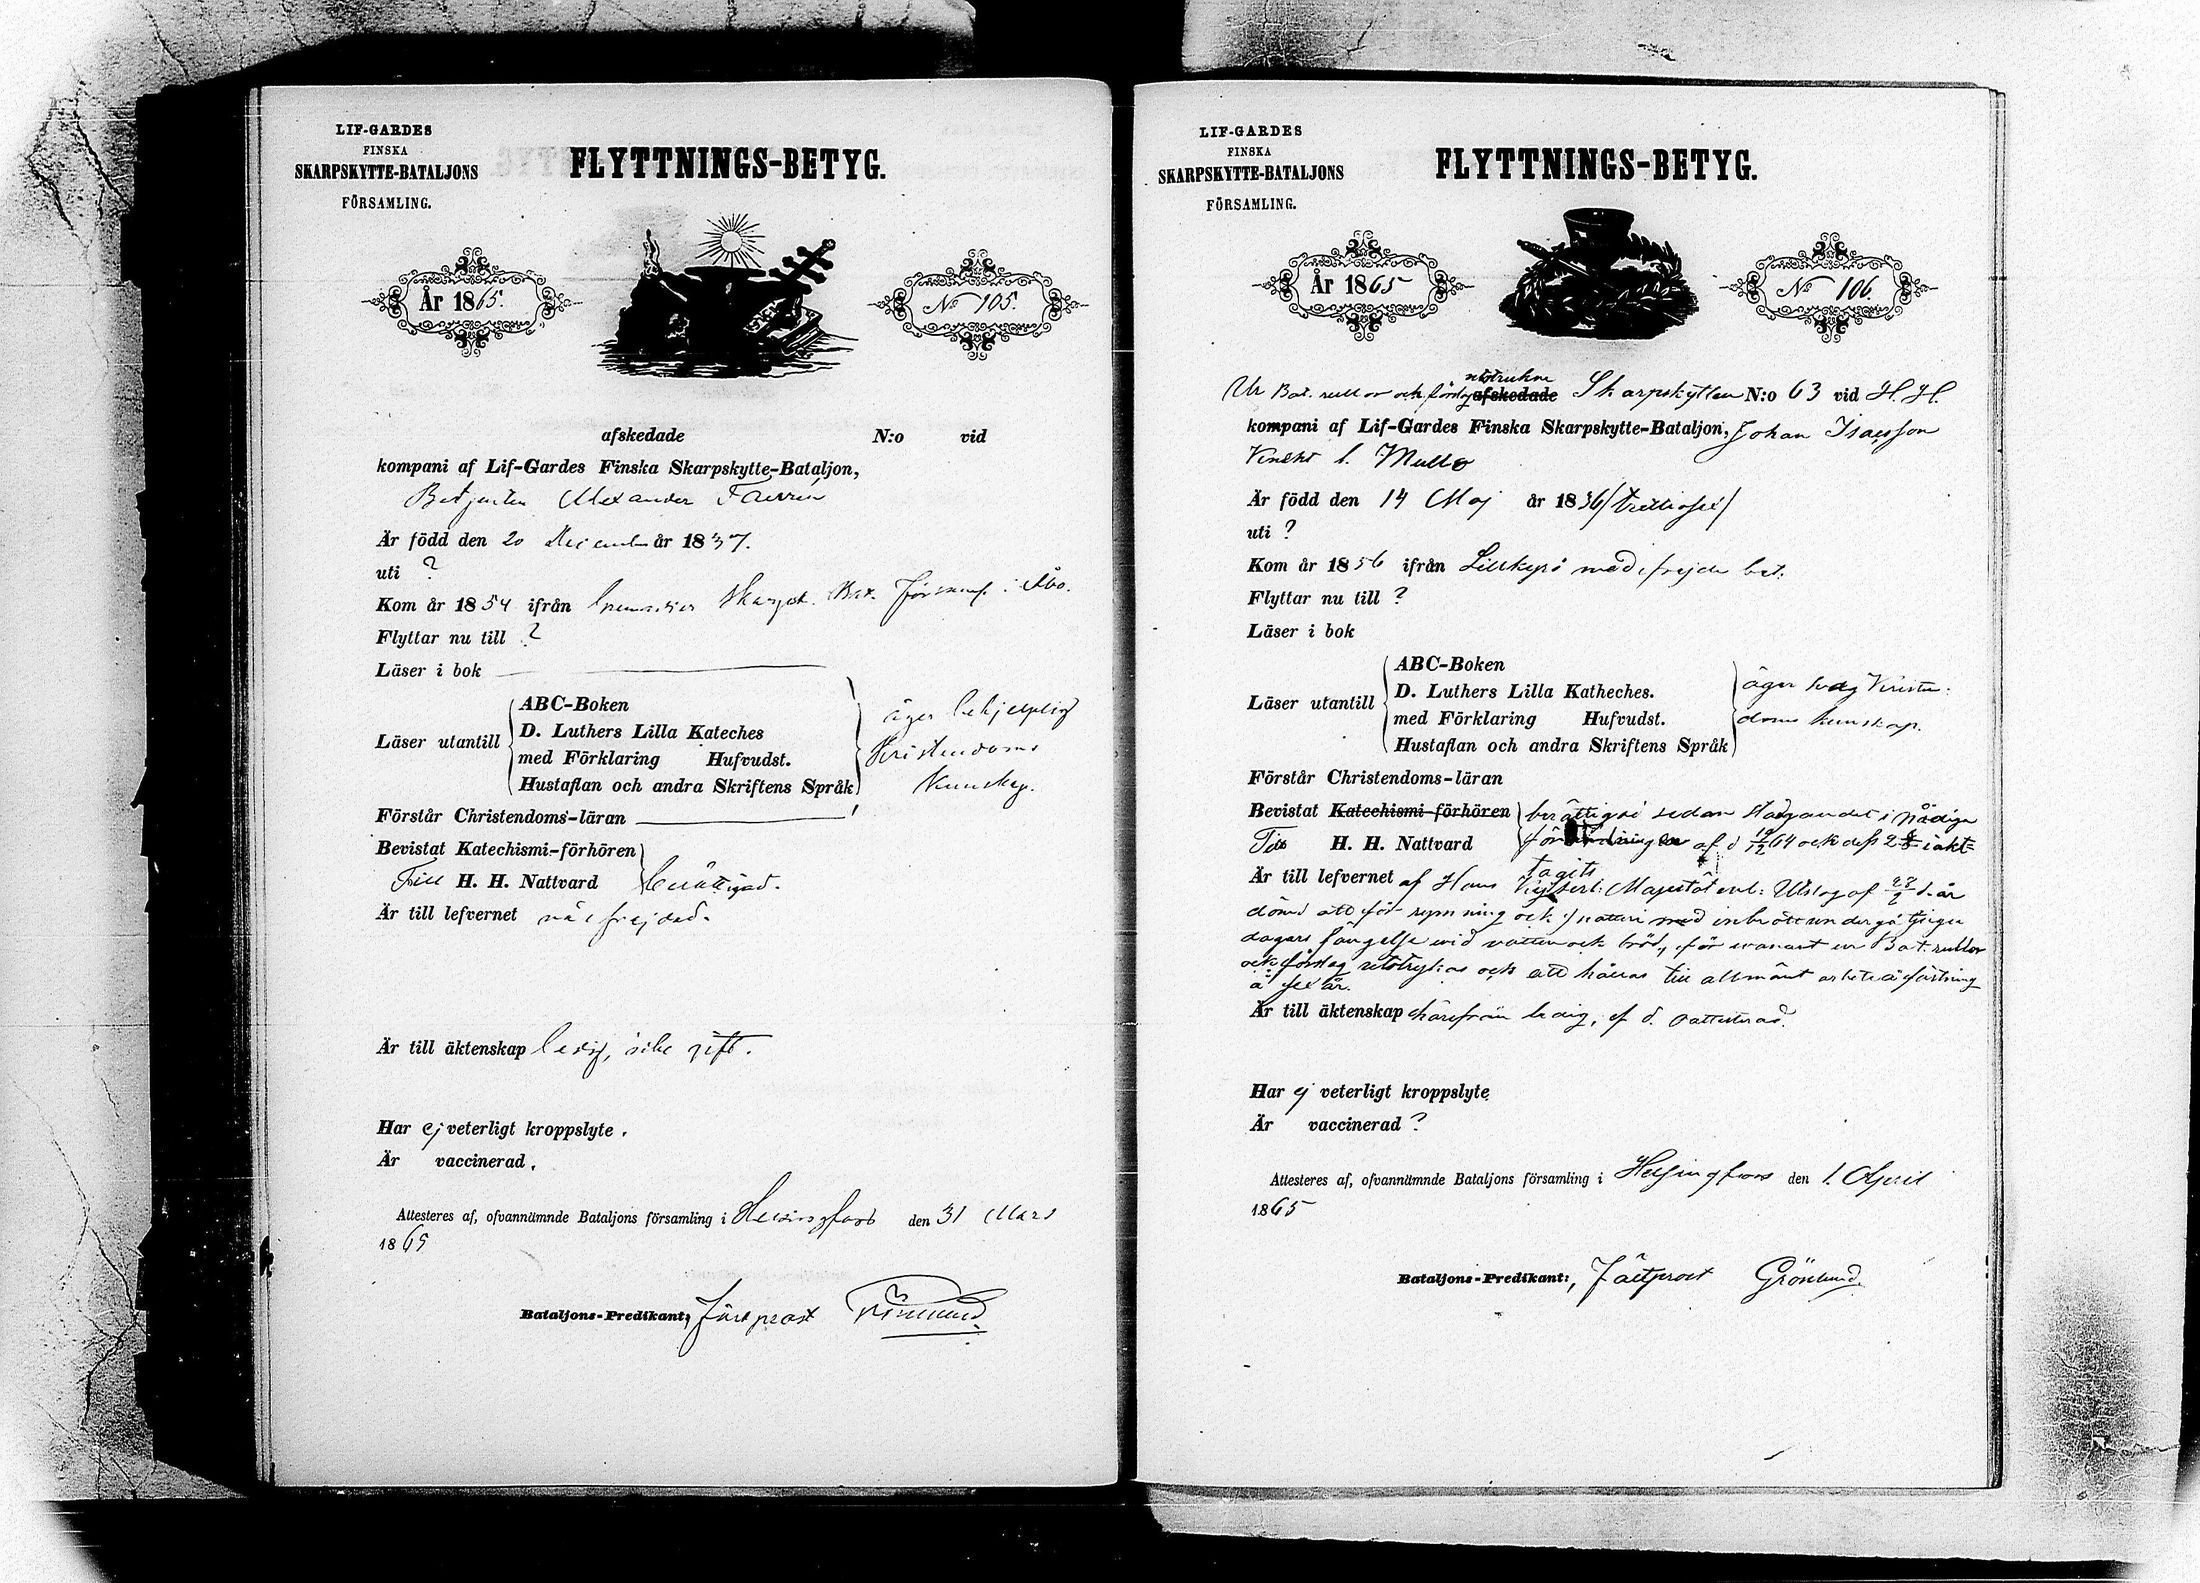 LIF-GARDES
FINSKA
SKARPSKYTTE-BATALJONS
FÖRSAMLING.
FLYTTNINGS-BETYG.
År 1865.
No 105.
afskedade N:o vid
kompani af Lif-Gardes Finska Skarpskytte-Bataljon,
Betjenten Alexander
Är född den 20 December år 1837.
uti ?
Kom år 1854 ifrån Skarpsk. Bat. Församl. i Åbo.
Flyttar nu till ?
Läser i bok
Läser utantill
ABC-Boken
D. Luthers Lilla Kateches
med Förklaring Hufvudst.
Hustaflan och andra Skriftens Språk
äger behjelplig
Kristendoms
kunskap.
Förstår Christendoms-läran
Bevistat Katechismi-förhören
Till H. H. Nattvard berättigad.
Är till lefvernet väl frejdad.
Är till äktenskap ledig, icke gift.
Har ej veterligt kroppslyte.
Är vaccinerad.
Attesteres af, ofvannämnde Bataljons församling i Helsingfors den 31 Mars
1865
Bataljons-Predikant: Fältprost Grönlund.
LIF-GARDES
FINSKA
SKARPSKYTTE-BATALJONS
FÖRSAMLING.
FLYTTNINGS-BETYG.
År 1865
No 106.
utstrukne
Ur Bat. rullor och förslag afskedade Skarpskytten N:o 63 vid H. H.
kompani af Lif-Gardes Finska Skarpskytte-Bataljon, Johan Isacsson
l. Mullo
Är född den 14 Maj år 1836 /trettiosex/
uti ?
Kom år 1856 ifrån Lillkyrö med frejde bet.
Flyttar nu till ?
Läser i bok
Läser utantill
ABC-Boken
D. Luthers Lilla Katheches.
med Förklaring Hufvudst.
Hustaflan och andra Skriftens Språk
äger svag Kristen-
doms kunskap.
Förstår Christendoms-läran
Bevistat Katechismi-förhören berättigas sedan stadgandet i Nådiga
Till H. H. Nattvard af d 12/12 64 och dess 2 § iakt=
tagits
Är till lefvernet af Hans Kejserl: Majestät enl: Utslag af d. år
dömd att för rymning och snatteri med inbrott undergå tjugu
dagars fängelse wid vatten och bröd, för warant ur Bat. rullor
och förslag utstrykas och att hållas till allmänt arbete å fästning
å sex år.
Är till äktenskap härifrån ledig, af d. oattesterad.
Har ej veterligt kroppslyte
Är vaccinerad ?
Attesteres af, ofvannämnde Bataljons församling i Helsingfors den 1. April
1865
Bataljons-Predikant:, Fältprost Grönlund.